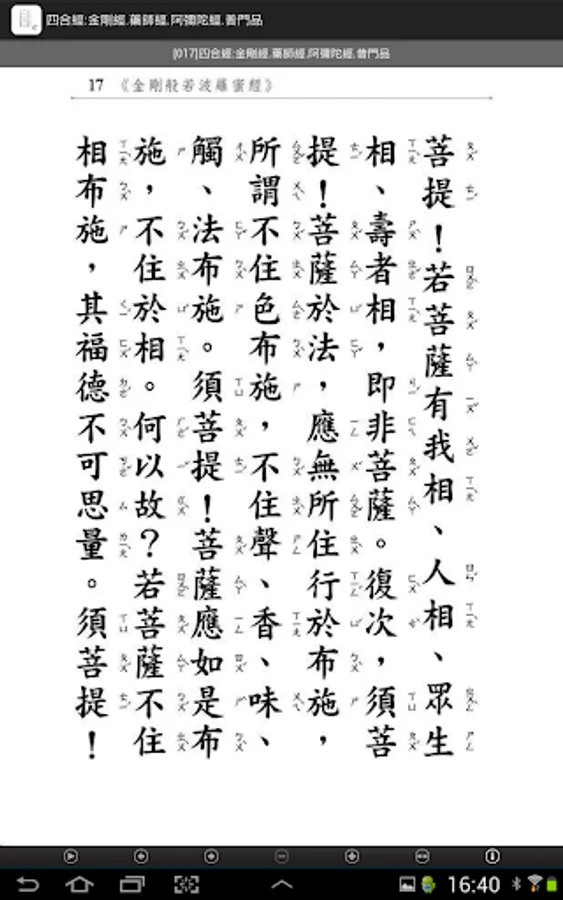 四合經:金剛經.藥師經.阿彌陀經.普門品
[017]四合經:金剛經.藥師經.阿彌陀經.普門品
17 《金剛般若波羅蜜經》
菩提！若菩薩有我相、人相、眾生
相、壽者相，即非菩薩。復次，須菩
提！菩薩於法，應無所住行於布施，
所謂不住色布施，不住聲、香、味、
觸、法布施。須菩提！菩薩應如是布
施，不住於相。何以故？若菩薩不住
相布施，其福德不可思量。須菩提！
16:40